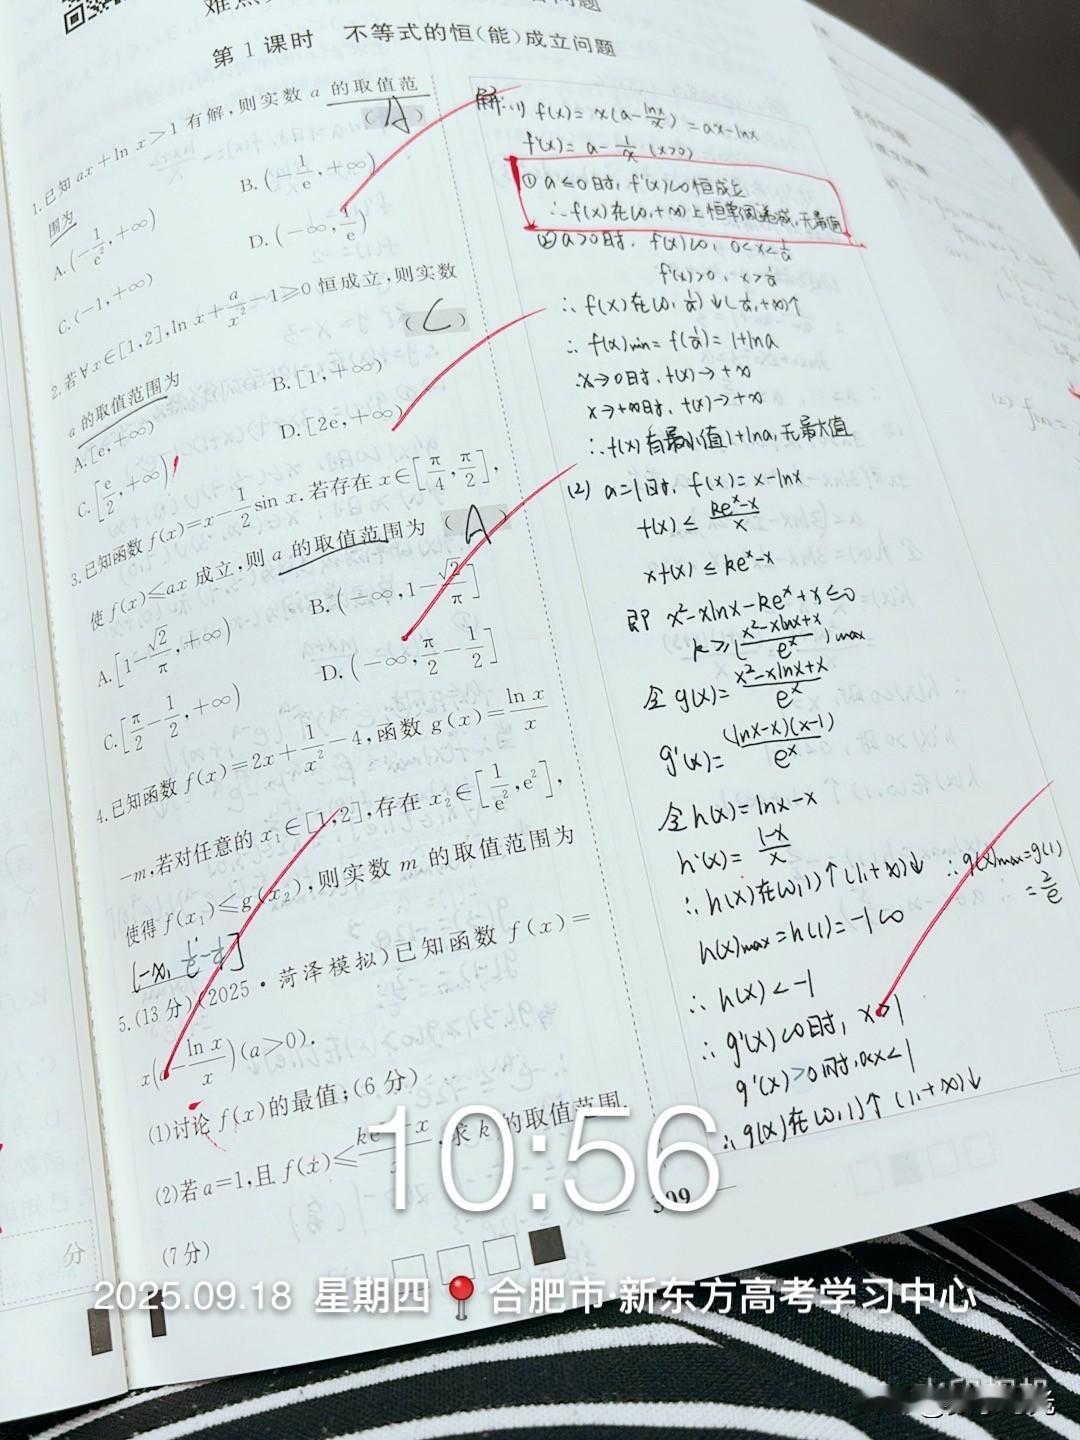 第1课时 不等式的恒(能)成立问题
1.已知ax+ln x>1有解,则实数a的取值范
围为 (A)
A.(-1/e²,+∞) B.(1/e,+∞)
C.(-1,+∞) D.(-∞,1/e)
2.若∀x∈[1,2],ln x+a/x²-1≥0恒成立,则实数
a的取值范围为 (C)
A.[e,+∞) B.[1,+∞)
C.[e/2,+∞) D.[2e,+∞)
3.已知函数f(x)=x-1/2 sin x.若存在x∈[π/4,π/2],
使f(x)≤ax成立,则a的取值范围为 (A)
A.[1-√2/π,+∞) B.(-∞,1-√2/π]
C.[π/2-1/2,+∞) D.(-∞,π/2-1/2]
4.已知函数f(x)=2x+1/x²-4,函数g(x)=ln x/x
-m,若对任意的x₁∈[1,2],存在x₂∈[1/e²,e²],
使得f(x₁)≤g(x₂),则实数m的取值范围为
5.(13分)(2025·菏泽模拟)已知函数f(x)=
x(a-ln x/x)(a>0).
(1)讨论f(x)的最值;(6分)
(2)若a=1,且f(x)≤ke^x-x/x,求k的取值范围.
(7分)
解:(1) f(x)=x(a-lnx/x)=ax-lnx
f'(x)=a-1/x (x>0)
①a≤0时,f'(x)<0恒成立
∴f(x)在(0,+∞)上恒单调递减,无最值
②a>0时,f'(x)<0,0<x<1/a
f'(x)>0,x>1/a
∴f(x)在(0,1/a)↓(1/a,+∞)↑
∴f(x)min=f(1/a)=1+lna
∵x→0时,f(x)→+∞
x→+∞时,f(x)→+∞
∴f(x)有最小值1+lna,无最大值
(2) a=1时,f(x)=x-lnx
f(x)≤ke^x-x/x
xf(x)≤ke^x-x
即x²-xlnx-ke^x+x≤0
k≥(x²-xlnx+x/e^x)max
令g(x)=x²-xlnx+x/e^x
g'(x)=(lnx-x)(x-1)/e^x
令h(x)=lnx-x
h'(x)=1-x/x
∴h(x)在(0,1)↑(1,+∞)↓
h(x)max=h(1)=-1<0
∴h(x)<-1
∴g'(x)<0时,x>1
g'(x)>0时,0<x<1
∴g(x)在(0,1)↑(1,+∞)↓
∴g(x)max=g(1)
=2/e
309
分
10:56
2025.09.18 星期四 合肥市·新东方高考学习中心